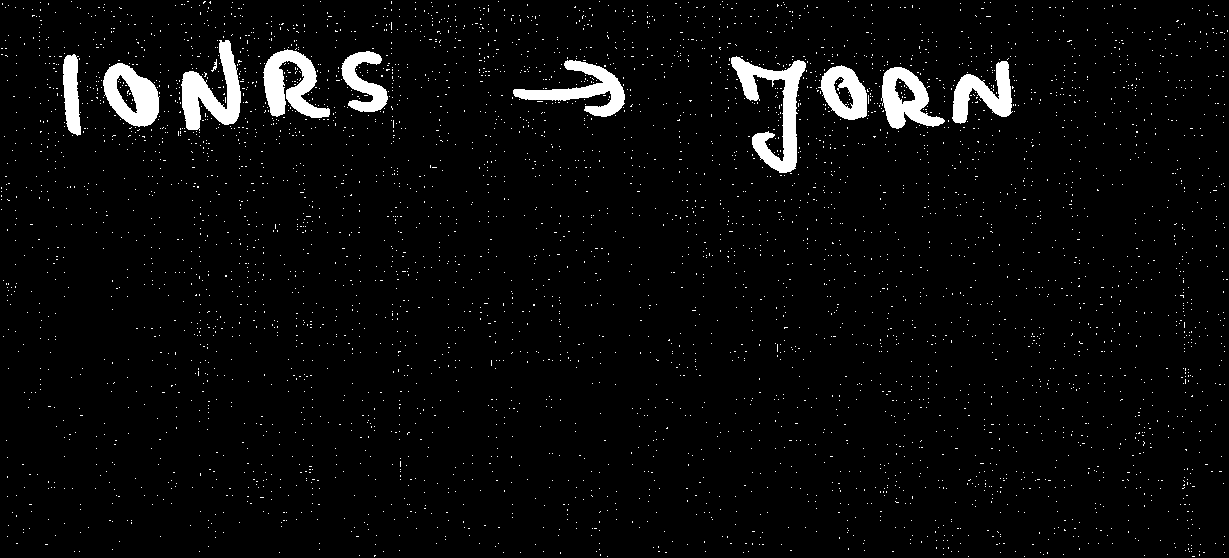 IONRS → JORN